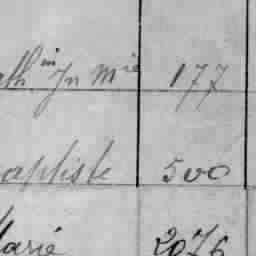 ath^in Jn M^rie 177
aptiste 500
Marie 2076